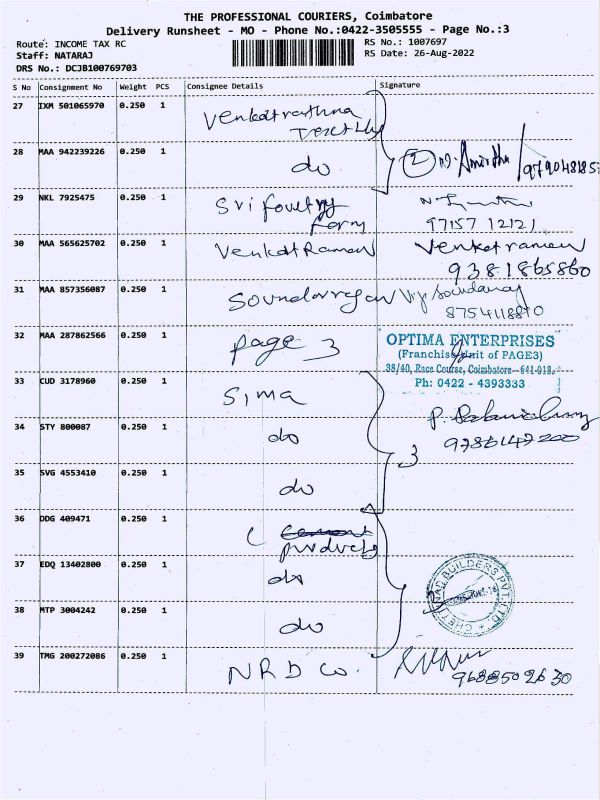 THE PROFESSIONAL COURIERS, Coimbatore
Delivery Runsheet - MO - Phone No.:0422-3505555 - Page No.:3
Route: INCOME TAX RC RS No.: 1007697
Staff: NATARAJ RS Date: 26-Aug-2022
DRS No.: DCJB100769703
S No Consignment No Weight PCS Consignee Details Signature
27 IXM 501065970 0.250 1 Venkatrathna
28 MAA 942239226 0.250 1 do 2
29 NKL 7925475 0.250 1 Sri Poultry
Farm 97157 12121
30 MAA 565625702 0.250 1 Venkat Raman Venkatraman
9381865860
31 MAA 857356087 0.250 1
8754118810
32 MAA 287862566 0.250 1 page 3 OPTIMA ENTERPRISES
(Franchise Unit of PAGE3)
38/40, Race Course, Coimbatore-641-018.
Ph: 0422 - 4393333
33 CUD 3178960 0.250 1 Sima
34 STY 800087 0.250 1 do
3
35 SVG 4553410 0.250 1 do
36 DDG 409471 0.250 1 C
products
37 EDQ 13402800 0.250 1 do
BUILDERS PVT LTD
38 MTP 3004242 0.250 1 do
39 TMG 200272086 0.250 1 NRD Co.
9688502630